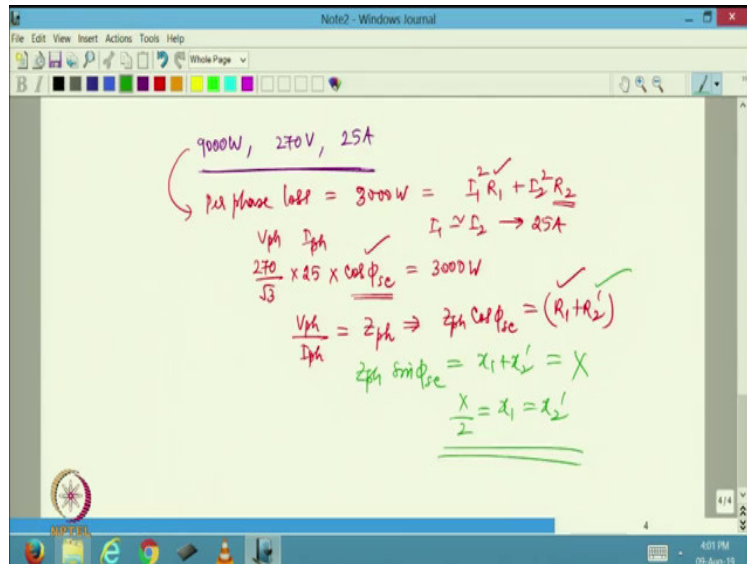 Note2 - Windows Journal
File Edit View Insert Actions Tools Help
Whole Page
B I
9000W, 270V, 25A
Per phase loss = 3000W = I₁² R₁ + I₂² R₂
I₁ ≃ I₂ → 25A
Vph Iph
270/√3 × 25 × cos ϕsc = 3000W
Vph/Iph = Zph ⇒ Zph Cos ϕsc = (R₁+R₂')
Zph sin ϕsc = x₁+x₂' = X
X/2 = x₁ = x₂'
NPTEL
4/4
4
4:01 PM
09-Aug-19